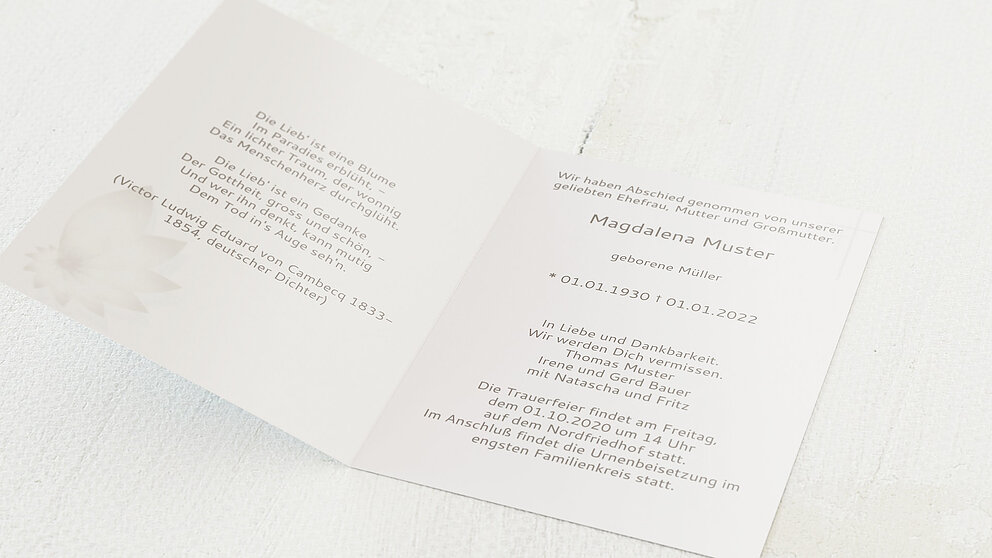 Die Lieb' ist eine Blume
Im Paradies erblüht, –
Ein lichter Traum, der wonnig
Das Menschenherz durchglüht.
Die Lieb' ist ein Gedanke
Der Gottheit, gross und schön, –
Und wer ihn denkt, kann mutig
Dem Tod in's Auge seh'n.
(Victor Ludwig Eduard von Cambecq 1833–
1854, deutscher Dichter)
Wir haben Abschied genommen von unserer
geliebten Ehefrau, Mutter und Großmutter.
Magdalena Muster
geborene Müller
* 01.01.1930 † 01.01.2022
In Liebe und Dankbarkeit.
Wir werden Dich vermissen.
Thomas Muster
Irene und Gerd Bauer
mit Natascha und Fritz
Die Trauerfeier findet am Freitag,
dem 01.10.2020 um 14 Uhr
auf dem Nordfriedhof statt.
Im Anschluß findet die Urnenbeisetzung im
engsten Familienkreis statt.